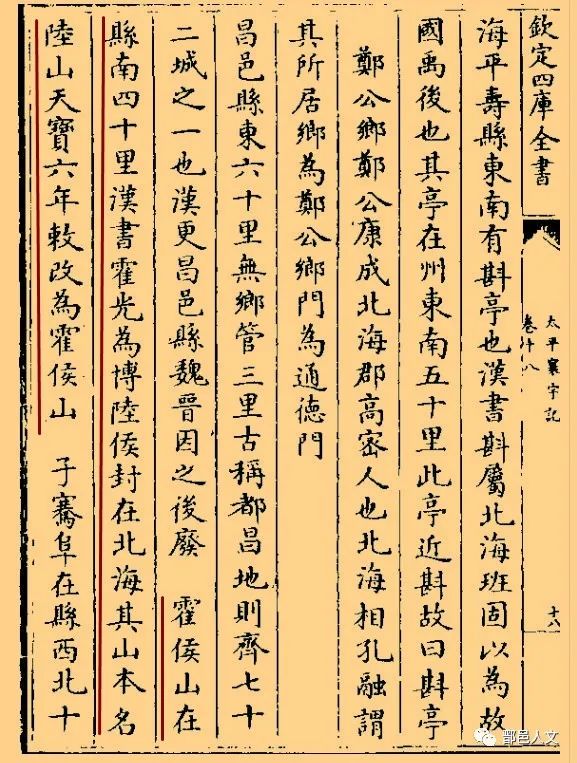 欽定四庫全書
太平寰宇記
卷十八
十六
海平壽縣東南有斟亭也漢書斟屬北海班固以為故
國禹後也其亭在州東南五十里此亭近斟故曰斟亭
鄭公鄉鄭公康成北海郡高宻人也北海相孔融謂
其所居鄉為鄭公鄉門為通德門
昌邑縣東六十里無鄉管三里古稱都昌地則齊七十
二城之一也漢更昌邑縣魏晉因之後廢　霍侯山在
縣南四十里漢書霍光為博陸侯封在北海其山本名
陸山天寶六年敕改為霍侯山　子騫阜在縣西北十
鄑邑人文